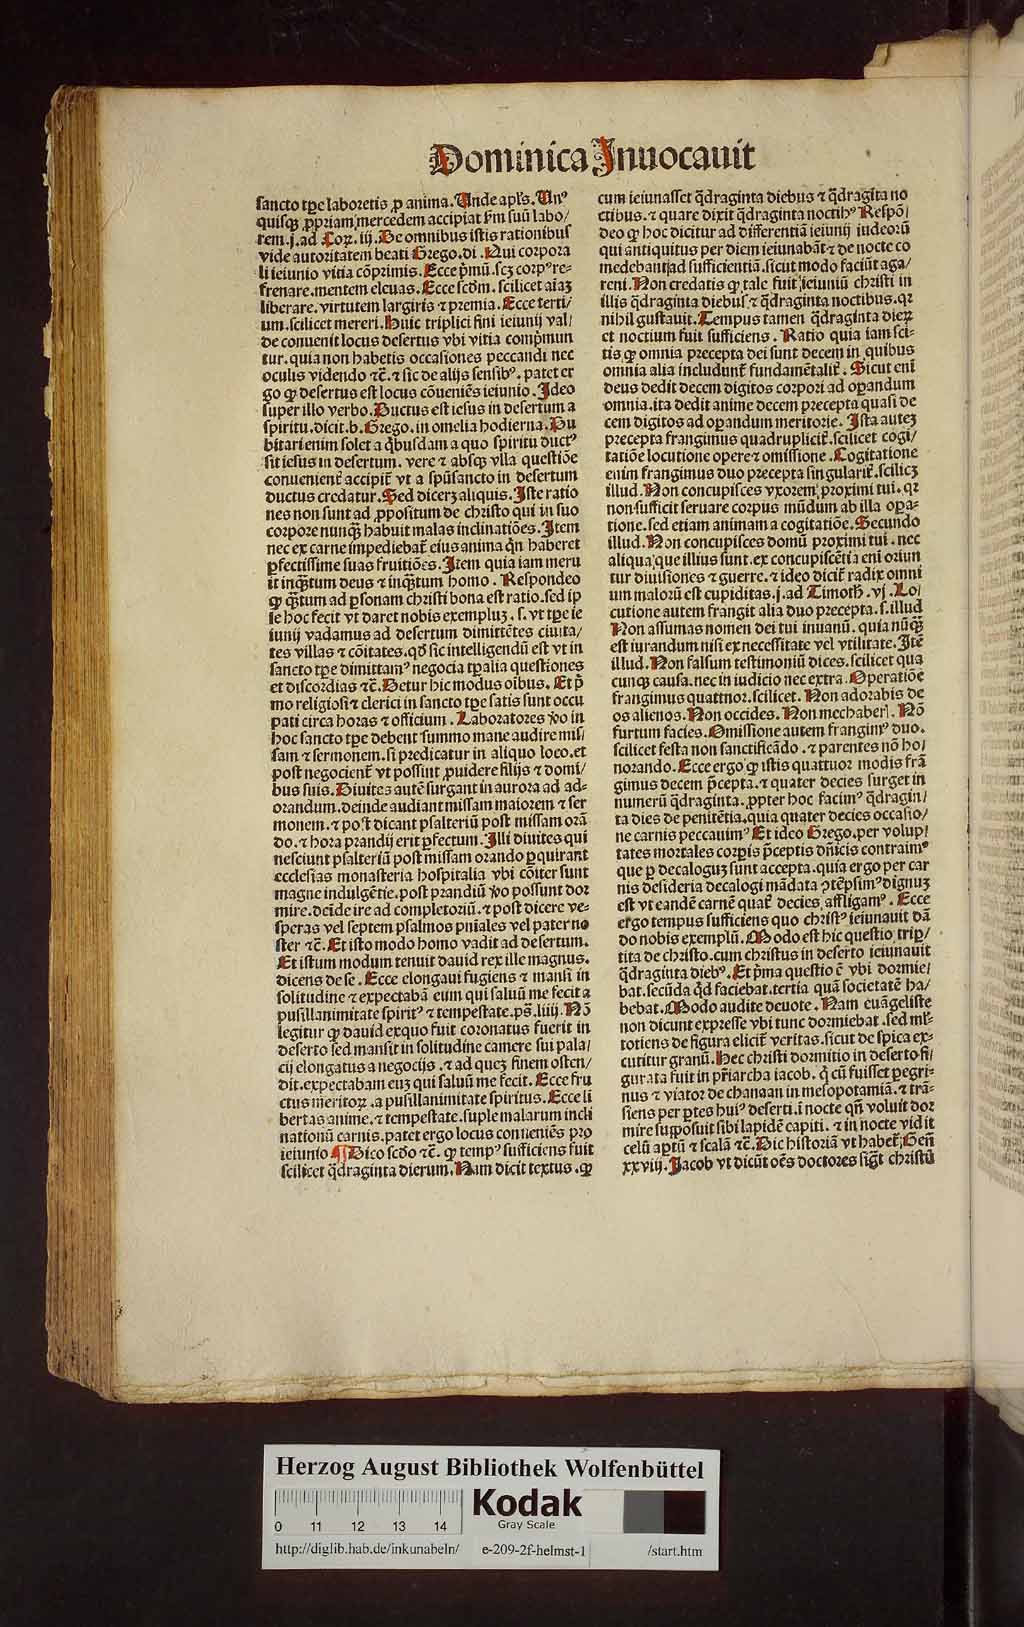 Dominica Inuocauit
sancto tꝑe laboretis ꝓ anima. Unde apl's. Unꝰ
quisqꝫ ꝓpriam mercedem accipiat ẜm suū labo/
rem. j. ad Coꝝ. iij. De omnibus istis rationibus
vide autoritatem beati Grego. di. Qui corpora
li ieiunio vitia cōprimis. Ecce pͥmū. scꝫ corpꝰ re-
frenare. mentem eleuas. Ecce scďm. scilicet aiaꝫ
liberare. virtutem largiris ⁊ premia. Ecce terti/
um. scilicet mereri. Huic triplici fini ieiunij val/
de conuenit locus desertus vbi vitia compͥmun
tur. quia non habetis occasiones peccandi nec
oculis videndo ⁊č. ⁊ sic de alijs sensibꝰ. patet er
go ꝙ desertus est locus cōueniēs ieiunio. Ideo
super illo verbo. Ductus est iesus in desertum a
spiritu. dicit. b. Grego. in omelia hodierna. Du
bitari enim solet a qͥbusdam a quo spiritu ductꝰ
sit iesus in desertum. vere ⁊ absqꝫ vlla questiōe
conuenient̄ accipit̄ vt a spūsancto in desertum
ductus credatur. Sed dicerꝫ aliquis. Iste ratio
nes non sunt ad ꝓpositum de christo qui in suo
corpore nunqꝫ̄ habuit malas inclinatiōes. Item
nec ex carne impediebat̄ eius anima qͥn haberet
ꝑfectissime suas fruitiōes. Item quia iam meru
it inqꝫ̄tum deus ⁊ inqꝫ̄tum homo. Respondeo
ꝙ qꝫ̄tum ad ꝑsonam christi bona est ratio. sed ip
se hoc fecit vt daret nobis exempluꝫ. s. vt tꝑe ie
iunij vadamus ad desertum dimittētes ciuita/
tes villas ⁊ cōitates. qď sic intelligendū est vt in
sancto tꝑe dimittamꝰ negocia tꝑalia questiones
et discordias ⁊č. Detur hic modus oībus. Et pͥ
mo religiosi ⁊ clerici in sancto tꝑe satis sunt occu
pati circa horas ⁊ officium. Laboratores ꝟo in
hoc sancto tꝑe debent summo mane audire mis/
sam ⁊ sermonem. si predicatur in aliquo loco. et
post negocient̄ vt possint ꝓuidere filijs ⁊ domi/
bus suis. Diuites autē surgant in aurora ad ad-
orandum. deinde audiant missam maiorem ⁊ ser
monem. ⁊ post dicant psalteriū post missam orā
do. ⁊ hora prandij erit ꝑfectum. Illi diuites qui
nesciunt psalteriū post missam orando ꝑquirant
ecclesias monasteria hospitalia vbi cōiter sunt
magne indulgētie. post prandiū ꝟo possunt dor
mire. deīde ire ad completoriū. ⁊ post dicere ve-
speras vel septem psalmos pnīales vel pater no
ster ⁊č. Et isto modo homo vadit ad desertum.
Et istum modum tenuit dauid rex ille magnus.
dicens de se. Ecce elongaui fugiens ⁊ mansi in
solitudine ⁊ expectabā eum qui saluū me fecit a
pusillanimitate spiritꝰ ⁊ tempestate. pš. liiij. Nō
legitur ꝙ dauid exquo fuit coronatus fuerit in
deserto sed mansit in solitudine camere sui pala/
cij elongatus a negocijs. ⁊ ad queꝫ finem osten/
dit. expectabam euꝫ qui saluū me fecit. Ecce fru
ctus meritoꝝ. a pusillanimitate spiritus. Ecce li
bertas anime. ⁊ tempestate. suple malarum incli
nationū carnis. patet ergo locus conueniēs pro
ieiunio ¶ Dico scďo ⁊č. ꝙ tempꝰ sufficiens fuit
scilicet qͣdraginta dierum. Nam dicit textus. ꝙ
cum ieiunasset qͣdraginta diebus ⁊ qͣdragīta no
ctibus. ⁊ quare dixit qͣdraginta noctibꝰ Respō/
deo ꝙ hoc dicitur ad differentiā ieiunij iudeorū
qui antiquitus per diem ieiunabāt ⁊ de nocte co
medebant ad sufficientiā. sicut modo faciūt aga/
reni. Non credatis ꝙ tale fuit ieiuniū christi in
illis qͣdraginta diebus ⁊ qͣdraginta noctibus. qꝛ
nihil gustauit. Tempus tamen qͣdraginta dieꝝ
et noctium fuit sufficiens. Ratio quia iam sci-
tis ꝙ omnia precepta dei sunt decem in quibus
omnia alia includunt̄ fundamētalit̄. Sicut enī
deus dedit decem digitos corpori ad oꝑandum
omnia. ita dedit anime decem precepta quasi de
cem digitos ad oꝑandum meritorie. Ista auteꝫ
precepta frangimus quadruplicit̄. scilicet cogi/
tatiōe locutione opere ⁊ omissione. Cogitatione
enim frangimus duo precepta singularit̄. scilicꝫ
illud. Non concupisces vxorem proximi tui. qꝛ
non sufficit seruare corpus mūdum ab illa oꝑa-
tione. sed etiam animam a cogitatiōe. Secundo
illud. Non concupisces domū proximi tui. nec
aliqua que illius sunt. ex concupiscētia enī oriun
tur diuisiones ⁊ guerre. ⁊ ideo dicit̄ radix omni
um malorū est cupiditas. j. ad Timoth. vj. Lo/
cutione autem frangit alia duo precepta. s. illud
Non assumas nomen dei tui inuanū. quia nūqꝫ̄
est iurandum nisi ex necessitate vel vtilitate. Itē
illud. Non falsum testimoniū dices. scilicet qua
cunqꝫ causa. nec in iudicio nec extra. Operatiōe
frangimus quattuor. scilicet. Non adorabis de
os alienos. Non occides. Non mechaberꝭ. Nō
furtum facies. Omissione autem frangimꝰ duo.
scilicet festa non sanctificādo. ⁊ parentes nō ho/
norando. Ecce ergo ꝙ istis quattuor modis frā
gimus decem pͣcepta. ⁊ quater decies surget in
numerū qͣdraginta. ꝓpter hoc facimꝰ qͣdragin/
ta dies de penitētia. quia quater decies occasio/
ne carnis peccauimꝰ Et ideo Grego. per volup/
tates mortales corꝑis pͣceptis dn̄icis contraimꝰ
que ꝑ decaloguꝫ sunt accepta. quia ergo per car
nis desideria decalogi mādata ꝯtēpsimꝰ dignuꝫ
est vt eandē carnē quat̄ decies affligamꝰ. Ecce
ergo tempus sufficiens quo christꝰ ieiunauit dā
do nobis exemplū. Modo est hic questio trip/
tita de christo. cum christus in deserto ieiunauit
qͣdraginta diebꝰ. Et pͥma questio ē vbi dormie/
bat. secūda qͥd faciebat. tertia quā societatē ha/
bebat. Modo audite deuote. Nam euāgeliste
non dicunt expresse vbi tunc dormiebat. sed ml'-
totiens de figura elicit̄ veritas. sicut de spica ex-
cutitur granū. Hec christi dormitio in deserto fi/
gurata fuit in pr̄iarcha iacob. qͥ cū fuisset ꝑegri-
nus ⁊ viator de chanaan in mesopotamiā. ⁊ trā-
siens per ꝑtes huiꝰ deserti. ī nocte qn̄ voluit dor
mire supposuit sibi lapidē capiti. ⁊ in nocte vidit
celū aꝑtū ⁊ scalā ⁊č. Dic historiā vt habet̄ Geñ
xxviij. Jacob vt dicūt oēs doctores sigͣt christū
Herzog August Bibliothek Wolfenbüttel
Kodak
Gray Scale
0 11 12 13 14
http://diglib.hab.de/inkunabeln/ e-209-2f-helmst-1 /start.htm